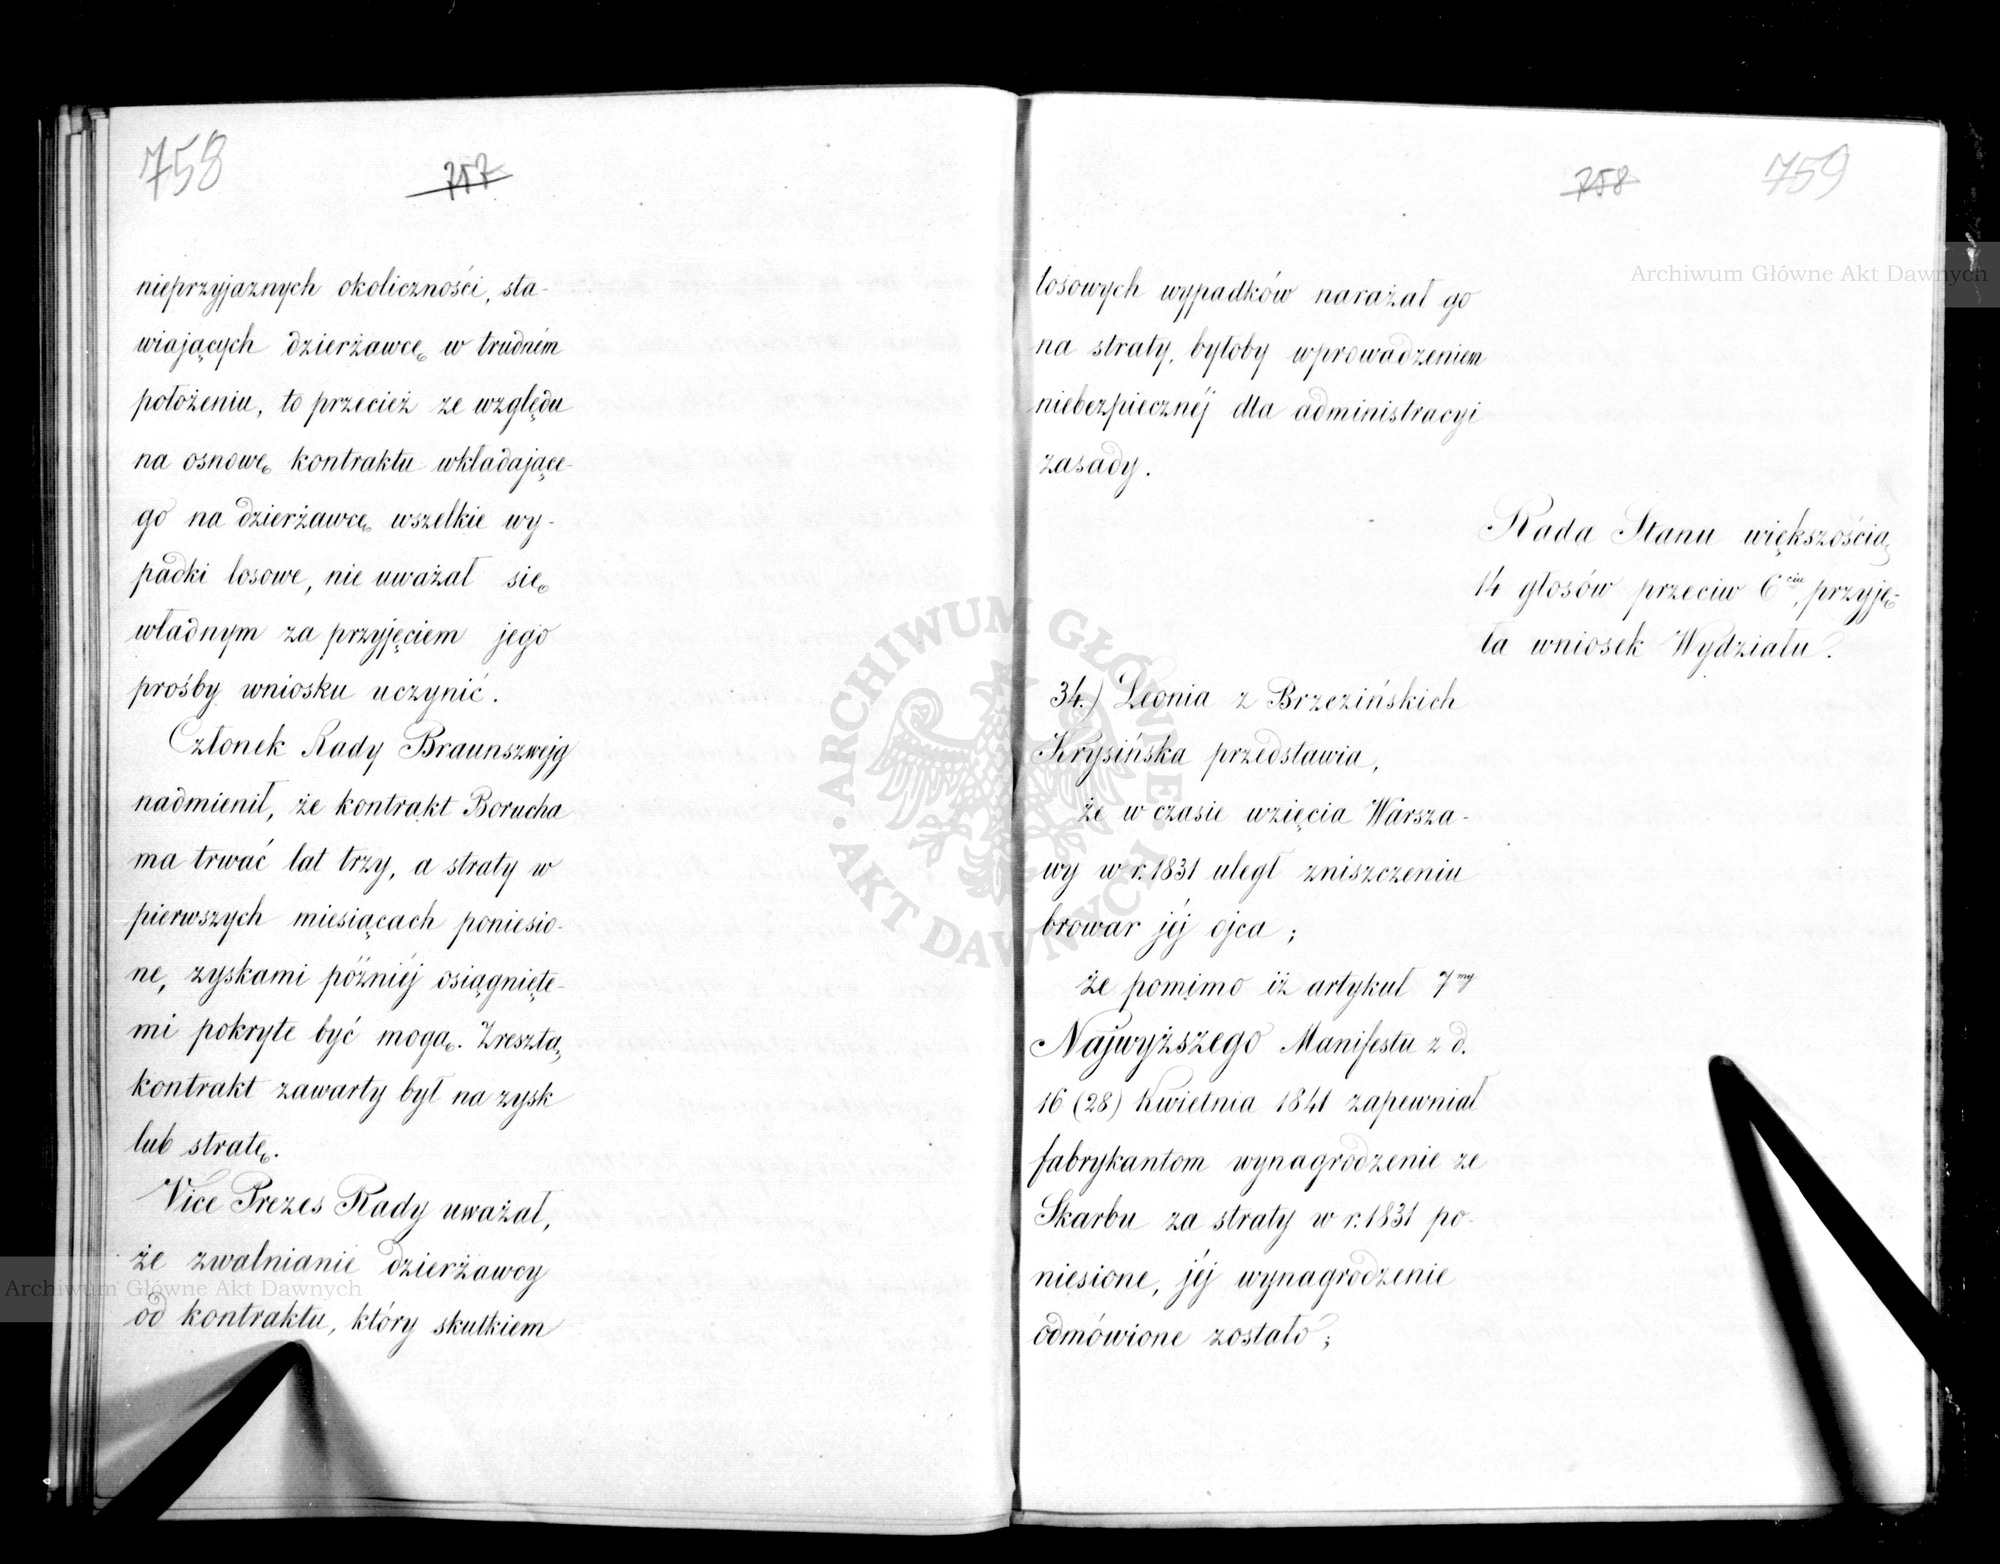 758
757
nieprzyjaznych okoliczności, sta-
wiających dzierżawcę w trudném
położeniu, to przecież ze względu
na osnowę kontraktu wkładające-
go na dzierżawcę wszelkie wy-
padki losowe, nie uważał się
władnym za przyjęciem jego
prośby wniosku uczynić.
Członek Rady Braunszwejg
nadmienił, że kontrakt Borucha
ma trwać lat trzy, a straty w
pierwszych miesiącach poniesio-
ne, zyskami późniéj osiągnięte-
mi pokryte być mogą. Zresztą
kontrakt zawarty był na zysk
lub stratę.
Vice Prezes Rady uważał,
że zwalnianie dzierżawcy
od kontraktu, który skutkiem
758
759
losowych wypadków narażał go
na straty, byłoby wprowadzeniem
niebezpiecznéj dla administracyi
zasady.
Rada Stanu większością
14 głosów przeciw 6ciu, przyję-
ła wniosek Wydziału.
34.) Leonia z Brzezińskich
Krysińska przedstawia,
że w czasie wzięcia Warsza-
wy w r. 1831 uległ zniszczeniu
browar jéj ojca;
że pomimo iż artykuł 7my
Najwyższego Manifestu z d.
16 (28) Kwietnia 1841 zapewniał
fabrykantom wynagrodzenie ze
Skarbu za straty w r. 1831 po-
niesione, jéj wynagrodzenie
odmówione zostało;
Archiwum Główne Akt Dawnych
Archiwum Główne Akt Dawnych
ARCHIWUM GŁÓWNE AKT DAWNYCH